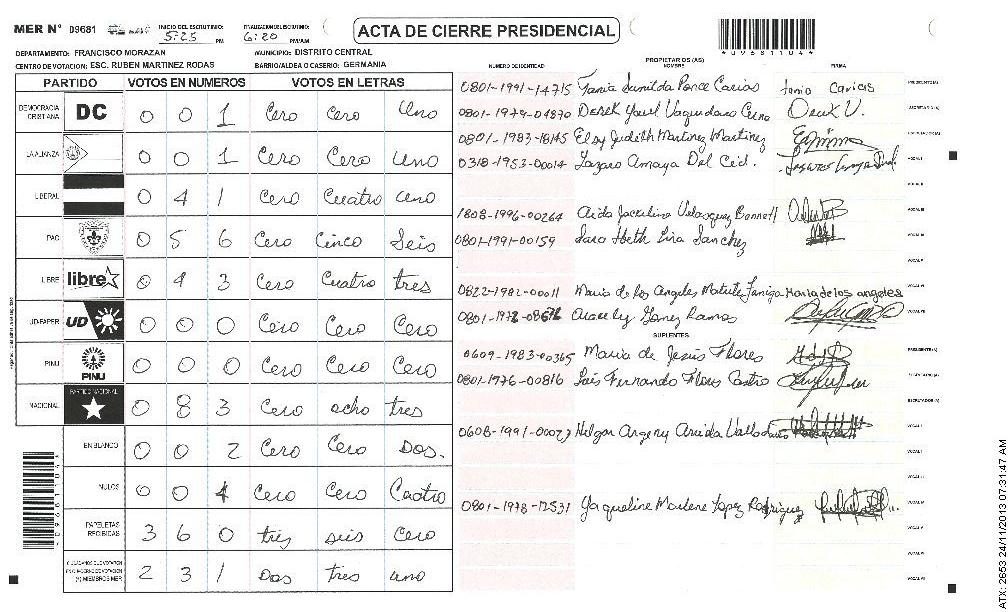 MER Nº 09681 INICIO DEL ESCRUTINIO: 5:25 PM FINALIZACION DEL ESCRUTINIO: 6:20 PM/AM ACTA DE CIERRE PRESIDENCIAL
*09681104*
DEPARTAMENTO: FRANCISCO MORAZAN MUNICIPIO: DISTRITO CENTRAL
CENTRO DE VOTACION: ESC. RUBEN MARTINEZ RODAS BARRIO/ALDEA O CASERIO: GERMANIA
PARTIDO VOTOS EN NUMEROS VOTOS EN LETRAS
DEMOCRACIA CRISTIANA DC 0 0 1 Cero Cero Uno
LA ALIANZA 0 0 1 Cero Cero uno
LIBERAL 0 4 1 Cero Cuatro uno
PAC 0 5 6 Cero Cinco Seis
LIBRE libre 0 4 3 Cero Cuatro tres
UD-FAPER UD 0 0 0 Cero Cero Cero
PINU PINU 0 0 0 Cero Cero Cero
NACIONAL PARTIDO NACIONAL 0 8 3 Cero ocho tres
EN BLANCO 0 0 2 Cero Cero Dos.
NULOS 0 0 4 Cero Cero Cuatro
PAPELETAS RECIBIDAS 3 6 0 tres seis Cero
2 3 1 Dos tres uno
(*) MIEMBROS MER
PROPIETARIOS (AS)
NUMERO DE IDENTIDAD NOMBRE FIRMA
0801-1991-14715 Tania Ponce Carias tania carias PRESIDENTE(A)
0801-1979-04870 Derek SECRETARIO(A)
0801-1983-18145 Elsy Judith Martinez Martinez ESCRUTADOR(A)
0318-1953-00014 Lazaro Amaya Del Cid. VOCAL I
VOCAL II
1808-1996-00264 Aida Jackeline Velasquez Bonnett VOCAL III
0801-1991-00159 Sara Lira Sanchez VOCAL IV
VOCAL V
0822-1982-00011 Maria de los Angeles Maria de los angeles VOCAL VI
Aracely Gomez Ramos VOCAL VII
SUPLENTES
0609-1983-00365 Maria de Jesus Flores PRESIDENTE(A)
0801-1976-00816 Luis Fernando Flores Castro SECRETARIO(A)
ESCRUTADOR(A)
VOCAL I
VOCAL II
VOCAL III
0801-1978-12531 Yaqueline Marlene Lopez Rodriguez VOCAL IV
VOCAL V
VOCAL VI
VOCAL VII
ATX: 2653 24/11/2013 07:31:47 AM